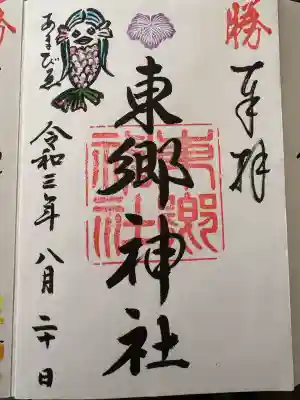 勝
奉拝
東郷神社
東郷神社
あまびゑ
令和三年 八月 二十日